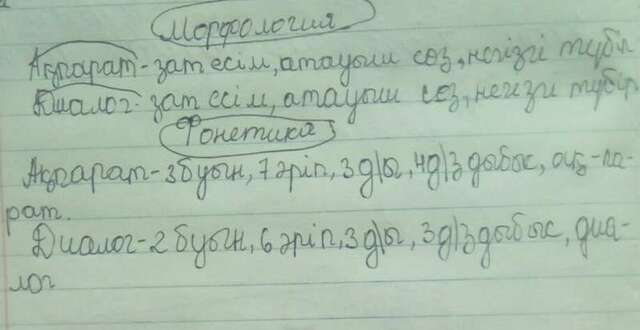 Морфология
Ақпарат-зат есім, атауыш сөз, негізгі түбір
Диалог-зат есім, атауыш сөз, негізгі түбір
Фонетика
Ақпарат-3 буын, 7 әріп, 3 д|ы, 4д|з дыбыс, ақ-па-
рат.
Диалог-2 буын, 6 әріп, 3 д|ы, 3д|з дыбыс, диа-
лог